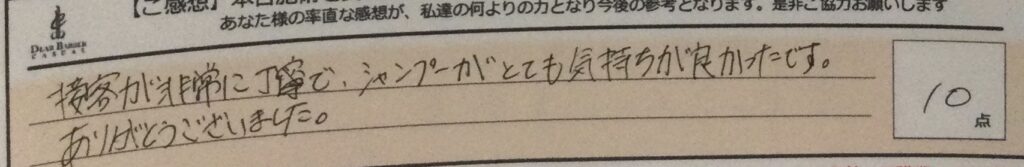 【ご感想】本日施術を
あなた様の率直な感想が、私達の何よりの力となり今後の参考となります。是非ご協力お願いします
DEAR BARBER
CASUAL
接客が非常に丁寧で、シャンプーがとても気持ちが良かったです。
ありがとうございました。
10点